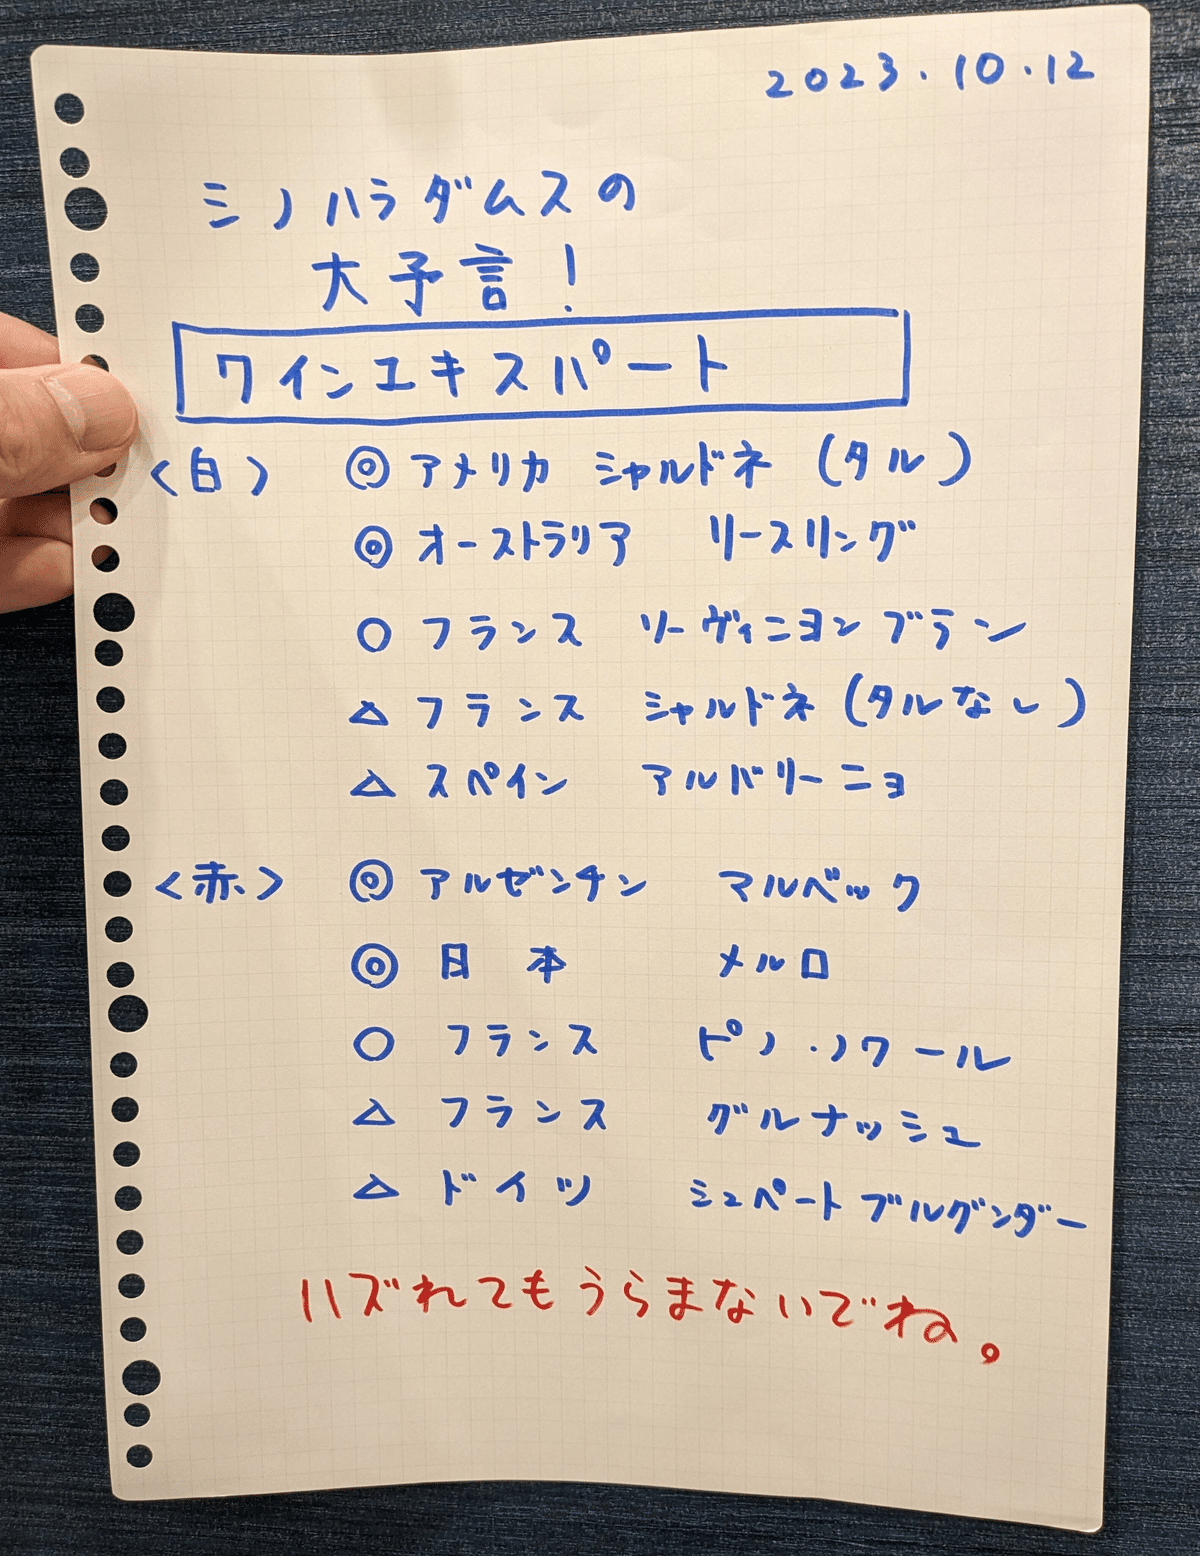 2023.10.12
シノハラダムスの
大予言!
ワインエキスパート
<白> ◎ アメリカ シャルドネ (タル)
◎ オーストラリア リースリング
○ フランス ソーヴィニヨンブラン
△ フランス シャルドネ (タルなし)
△ スペイン アルバリーニョ
<赤> ◎ アルゼンチン マルベック
◎ 日本 メルロ
○ フランス ピノ・ノワール
△ フランス グルナッシュ
△ ドイツ シュペートブルグンダー
ハズれてもうらまないでね。